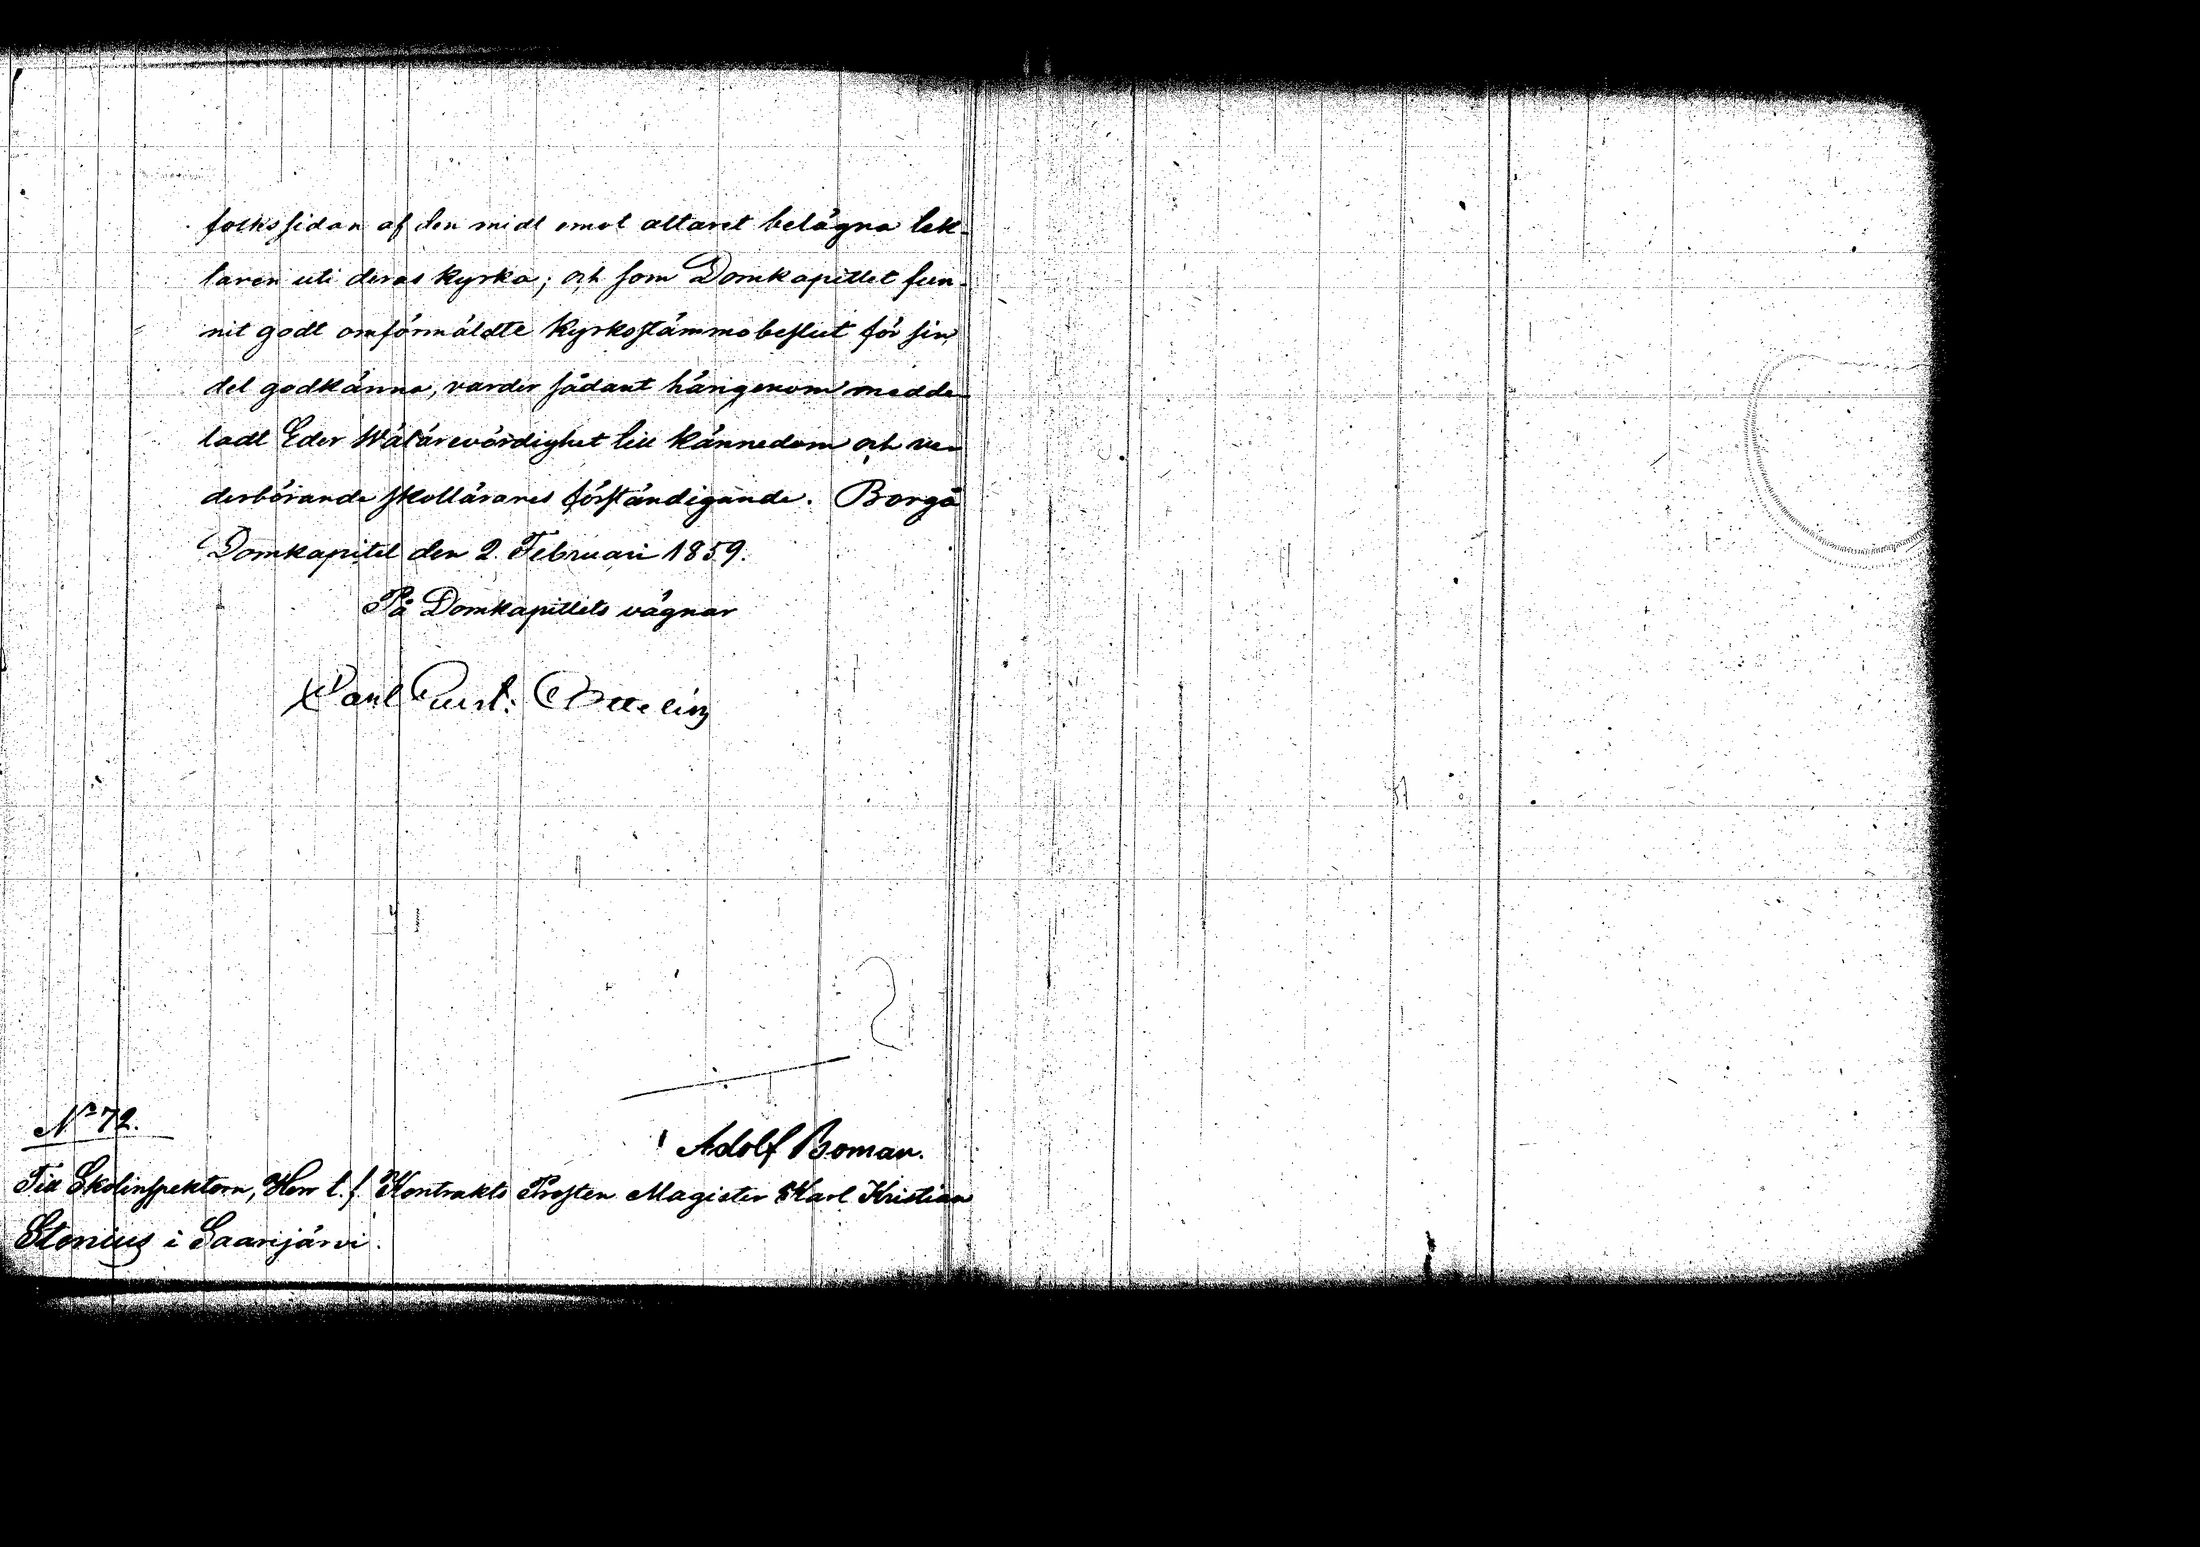 folkssidan af den midt emot altaret belägna läk-
taren uti deras kyrka; och som Domkapitlet fun-
nit godt omförmäldte Kyrkostämmobeslut för sin
del godkänna, varder sådant härigenom medde-
ladt Eder Wälärevördighet till kännedom och ve-
derbörande skollärares förständigande. Borgå
Domkapitel den 2. Februari 1859.
På Domkapitlets vägnar
Carl Gust. Ottelin
Adolf Boman.
No 72.
Till Skolinspektorn, Herr t. f. Kontrakts Prosten Magister Karl Kristian
Stenius i Saarijärvi.